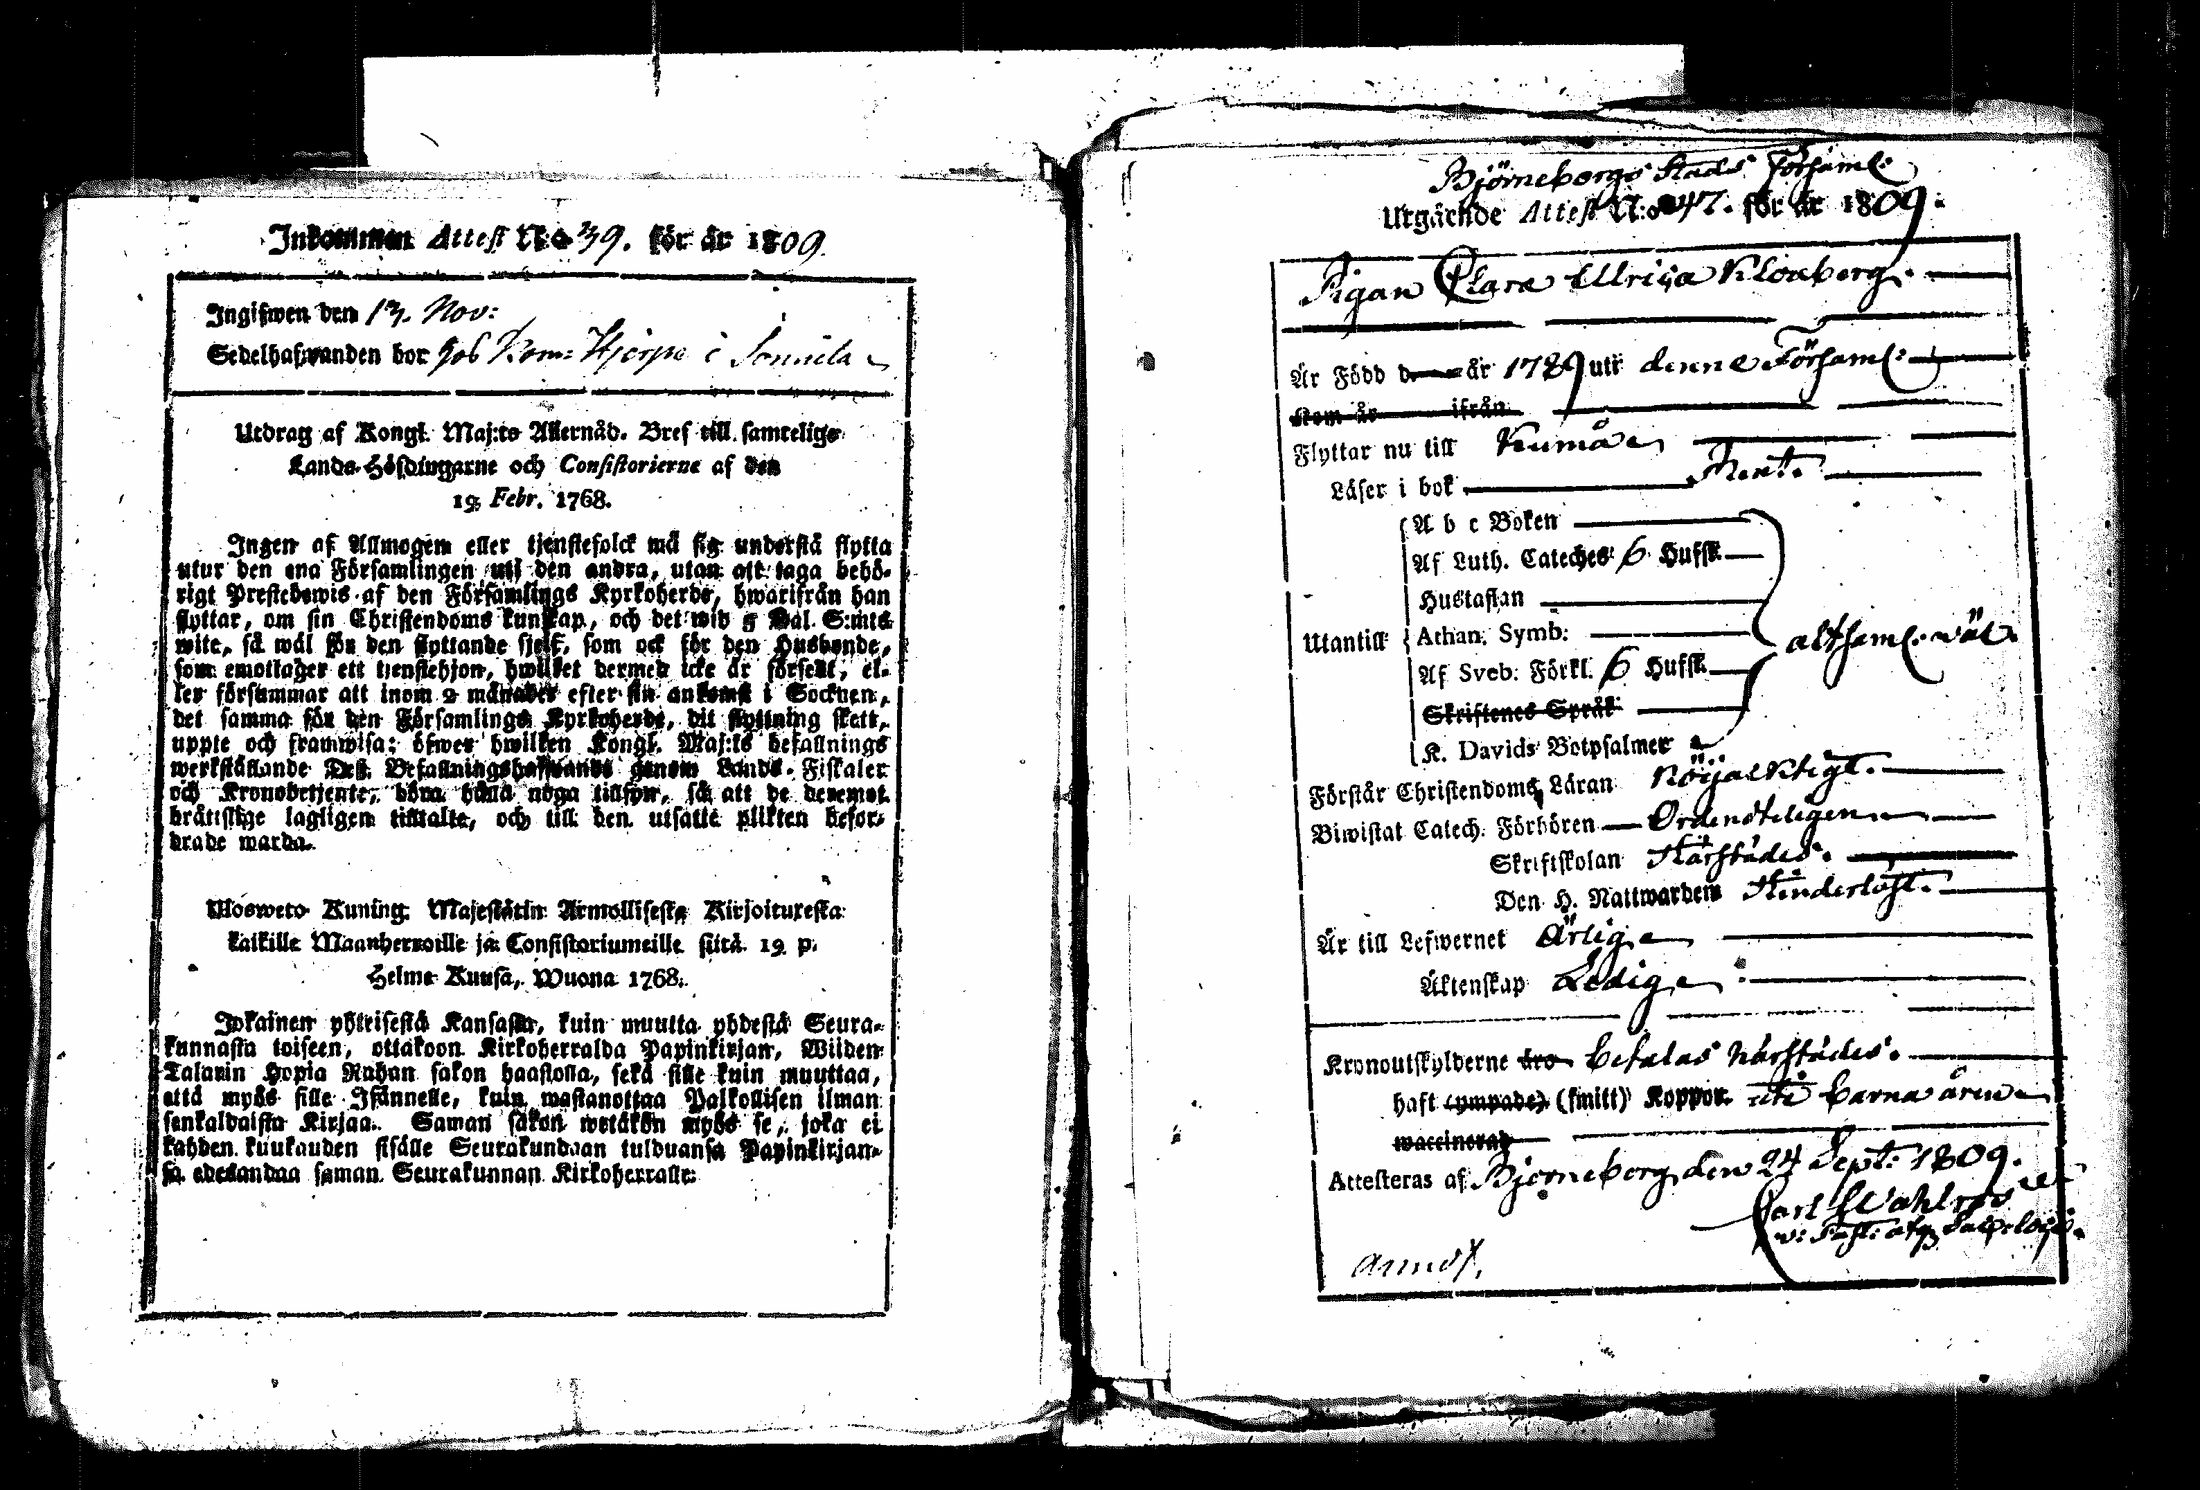 Inkommen Attest N:o 39. för år 1809.
Ingifwen den 13. Nov:
Sedelhafwanden bor hos Kom: Hjerpe i Sonnila
Utdrag af Kongl. Maj:ts Allernåd. Bref till samtelige
Lands-Höfdingarne och Consistorierne af den
19 Febr. 1768.
Ingen af Allmogen eller tjenstefolck må sig understå flytta
utur den ena Församlingen uti den andra, utan att taga behö-
rigt Prestebewis af den Församlings Kyrkoherde, hwarifrån han
flyttar, om sin Christendoms kunskap, och det wid 5 Dal. S:mts
wite, så wäl för den flyttande sjelf, som ock för den Husbonde,
som emottager ett tjenstehjon, hwilket dermed icke är försedt, el-
ler försummar att inom 2 månader efter sin ankomst i Socknen,
det samma för den Församlings Kyrkoherde, dit flyttning skett,
uppte och framwisa; öfwer hwilken Kongl. Maj:ts befallnings
werkställande Dess Befallningshafwande genom Lands-Fiskaler
och Kronobetjente, böra hålla noga tillsyn, så att de deremot
brätslige lagligen tilltalte, och till den utsatte plikten befor-
drade warda.
Ulosweto Kuning. Majestätin Armollisesta Kirjoituxesta
kaikille Maanherroille ja Consistoriumeille siitä 19 p.
Helme Kuusa, Wuona 1768.
Jokainen yhteisestä Kansasta, kuin muutta yhdestä Seura-
kunnasta toiseen, ottakoon Kirkoherralda Papinkirjan, Wiiden
Talarin Hopia Rahan sakon haastolla, sekä sille kuin muuttaa,
että myös sille Isännelle, kuin wastanottaa Palkollisen ilman
senkaldaista Kirjaa. Saman sakon wetäkön myös se, joka ei
kahden kuukauden sisälle Seurakundaan tulduansa Papinkirjan-
sa edesandaa saman Seurakunnan Kirkoherralle.
Björneborgs Stads Församl:
Utgående Attest N:o 47. för år 1809.
Pigan Clara Ullrica Kloxberg.
Är Född d. år 1789 uti denna Församl:
Kom år ifrån
Flyttar nu till Kumå
Läser i bok Rent.
A b c Boken
Af Luth. Cateches 6 Hufst.
Hustaflan
Utantill Athan. Symb: altsaml. wäl.
Af Sveb. Förkl. 6 Hufst.
Skriftenes Språk
K. Davids Botpsalmer
Förstår Christendoms Läran Nöjaktigt.
Biwistat Catech. Förhören Ordenteligen
Skriftskolan Härstädes.
Den H. Nattwarden Hinderlöst.
Är till Lefwernet Ärlig
Äktenskap Ledig
Kronoutskylderne äro betalas härstädes.
haft (ympade) (smitt) Koppor uti barnaåren
waccinerad
Attesteras af Björneborg den 24 Sept: 1809.
Carl Wahlroos
v: Past:
Annot.